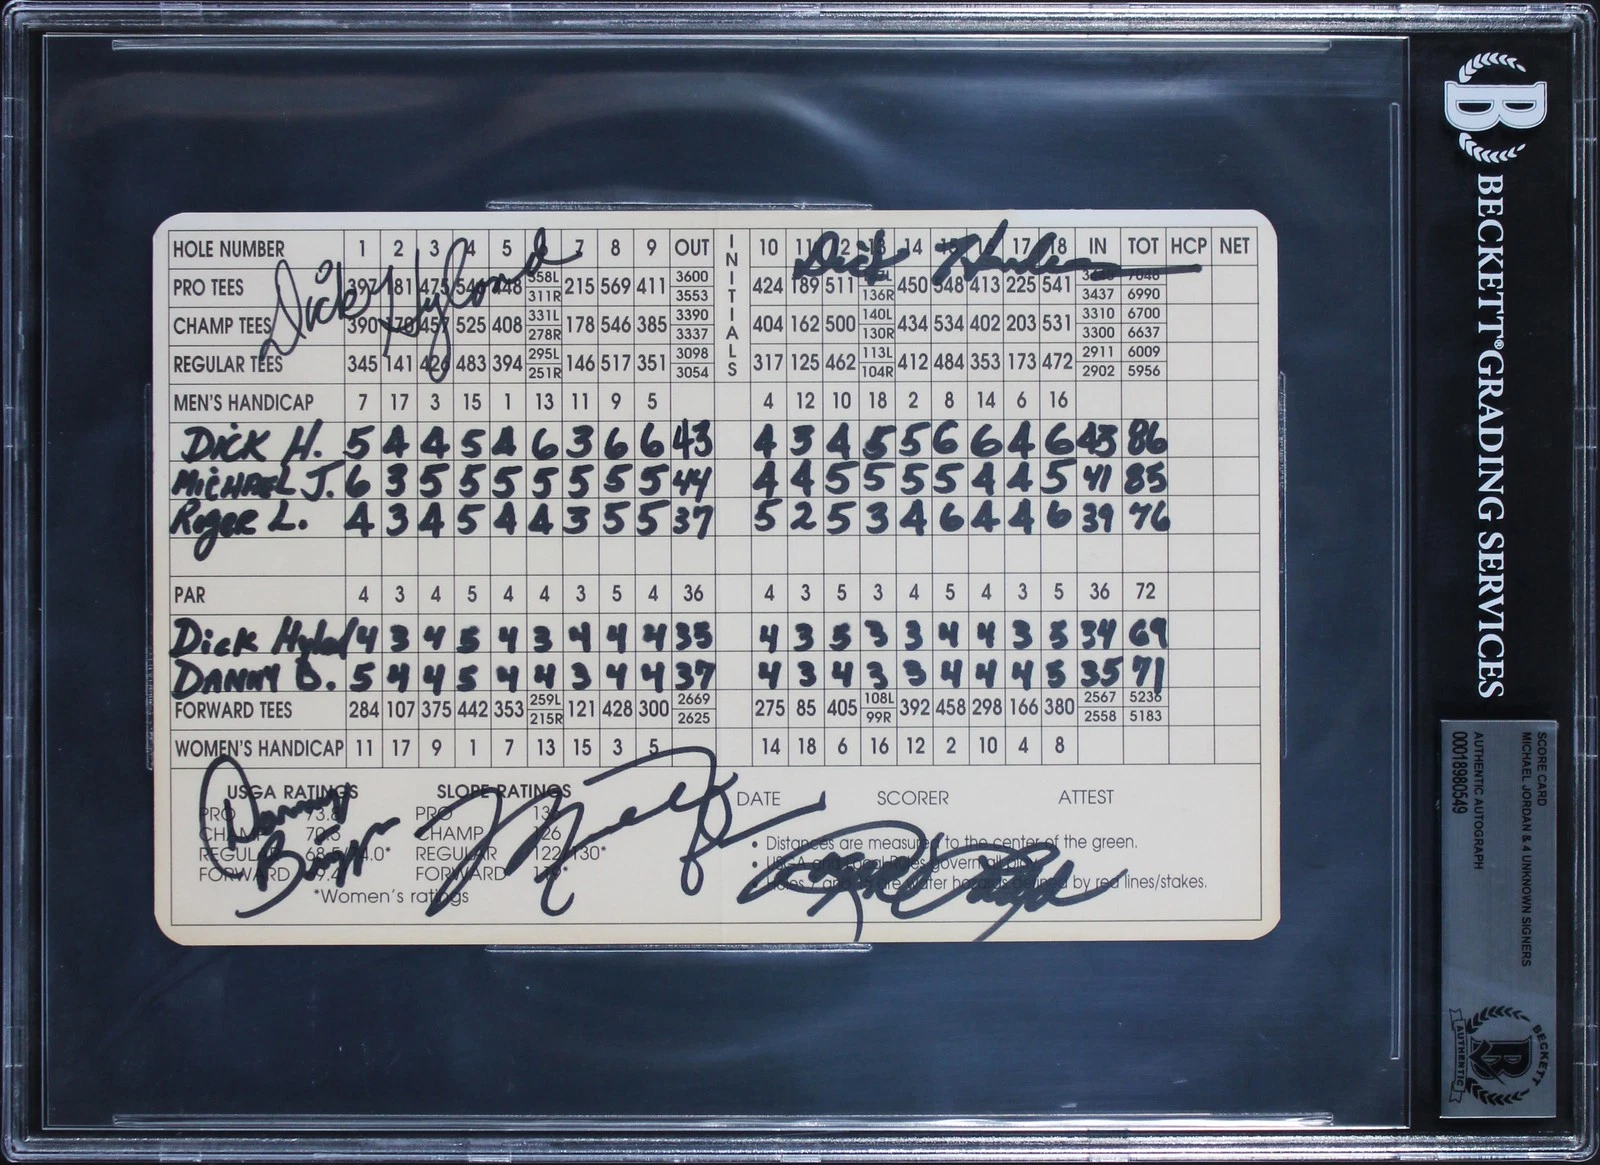 HOLE NUMBER 1 2 3 4 5 6 7 8 9 OUT INITIALS 10 11 12 13 14 15 16 17 18 IN TOT HCP NET
Dick Hyland
PRO TEES 397 181 475 541 448 358L 311R 215 569 411 3600 3553 424 189 511 136R 450 548 413 225 541 3437 7048 6990
CHAMP TEES 390 170 457 525 408 331L 278R 178 546 385 3390 3337 404 162 500 140L 130R 434 534 402 203 531 3310 3300 6700 6637
REGULAR TEES 345 141 426 483 394 295L 251R 146 517 351 3098 3054 317 125 462 113L 104R 412 484 353 173 472 2911 2902 6009 5956
MEN'S HANDICAP 7 17 3 15 1 13 11 9 5 4 12 10 18 2 8 14 6 16
DICK H. 5 4 4 5 4 6 3 6 6 43 4 3 4 5 5 6 6 4 6 43 86
MICHAEL J. 6 3 5 5 5 5 5 5 5 44 4 4 5 5 5 5 4 4 5 41 85
Roger L. 4 3 4 5 4 4 3 5 5 37 5 2 5 3 4 6 4 4 6 39 76
PAR 4 3 4 5 4 4 3 5 4 36 4 3 5 3 4 5 4 3 5 36 72
Dick Hyland 4 3 4 5 4 3 4 4 4 35 4 3 5 3 3 4 4 3 5 34 69
DANNY B. 5 4 4 5 4 4 3 4 4 37 4 3 4 3 3 4 4 4 5 35 71
FORWARD TEES 284 107 375 442 353 259L 215R 121 428 300 2669 2625 275 85 405 108L 99R 392 458 298 166 380 2567 2558 5236 5183
WOMEN'S HANDICAP 11 17 9 1 7 13 15 3 5 14 18 6 16 12 2 10 4 8
USGA RATINGS SLOPE RATINGS DATE SCORER ATTEST
PRO 73.8 PRO
CHAMP 70.3 CHAMP 126
REGULAR REGULAR 122/130*
FORWARD FORWARD
*Women's ratings
Danny Briggs
• Distances are measured to the center of the green.
• USGA and Local Rules govern all play.
• Holes 7 and are water hazards defined by red lines/stakes.
B
BECKETT® GRADING SERVICES
SCORE CARD
MICHAEL JORDAN & 4 UNKNOWN SIGNERS
AUTHENTIC AUTOGRAPH
00018980549
BECKETT
AUTHENTIC